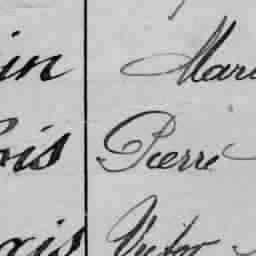 in Mari
ois Pierre
ais Victor